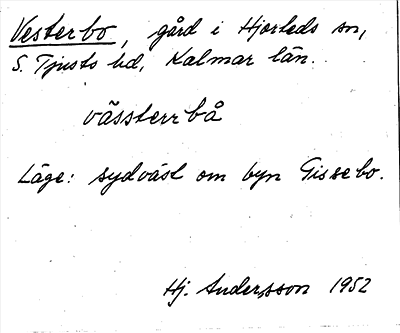 Vesterbo, gård i Hjorteds sn,
S. Tjusts hd, Kalmar län.
vässterrbå
Läge: sydväst om byn Gissebo.
Hj. Andersson 1952